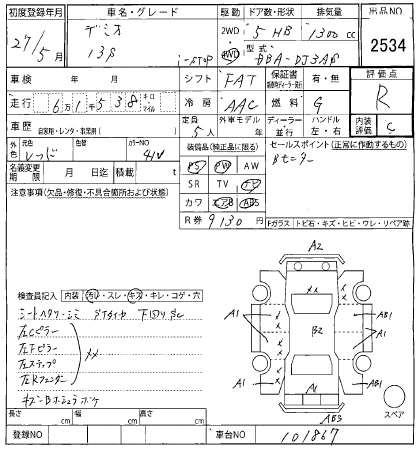 初度登録年月 車名・グレード 駆動 ドア数・形状 排気量 出品NO
27/5月 デミオ 13S i-STOP 2WD 4WD 5 HB 1300 cc 2534
型式 DBA-DJ3AS
車検 年 月 シフト FAT 保証書 有・無 評価点
走行 6万1千538 キロ マイル 冷房 AAC 燃料 G R
車歴 自家用・レンタ・事業用( ) 定員 5人 外車モデル 年 ディーラー 並行 ハンドル 左・右 内装評価 C
外色 元色 色替 カラーNO 41V 装備品(純正品に限る) セールスポイント(正常に作動するもの)
名義変更期限 月 日迄 積載 t PS PW AW Bモニター
注意事項(欠品・修復・不具合箇所および状態) SR TV ナビ
カワ エアB ABS
R券 9130円 Fガラス トビ石・キズ・ヒビ・ワレ・リペア跡
A2
検査員記入 内装 汚レ・スレ・キズ・キレ・コゲ・穴
左Cピラー
左Fピラー
左ステップ
左Rフェンダー
XX
A1 A1 B2 AB1 AB1
A1
スペア
AB3
長さ cm 幅 cm 高さ cm
登録NO 車台NO 101867